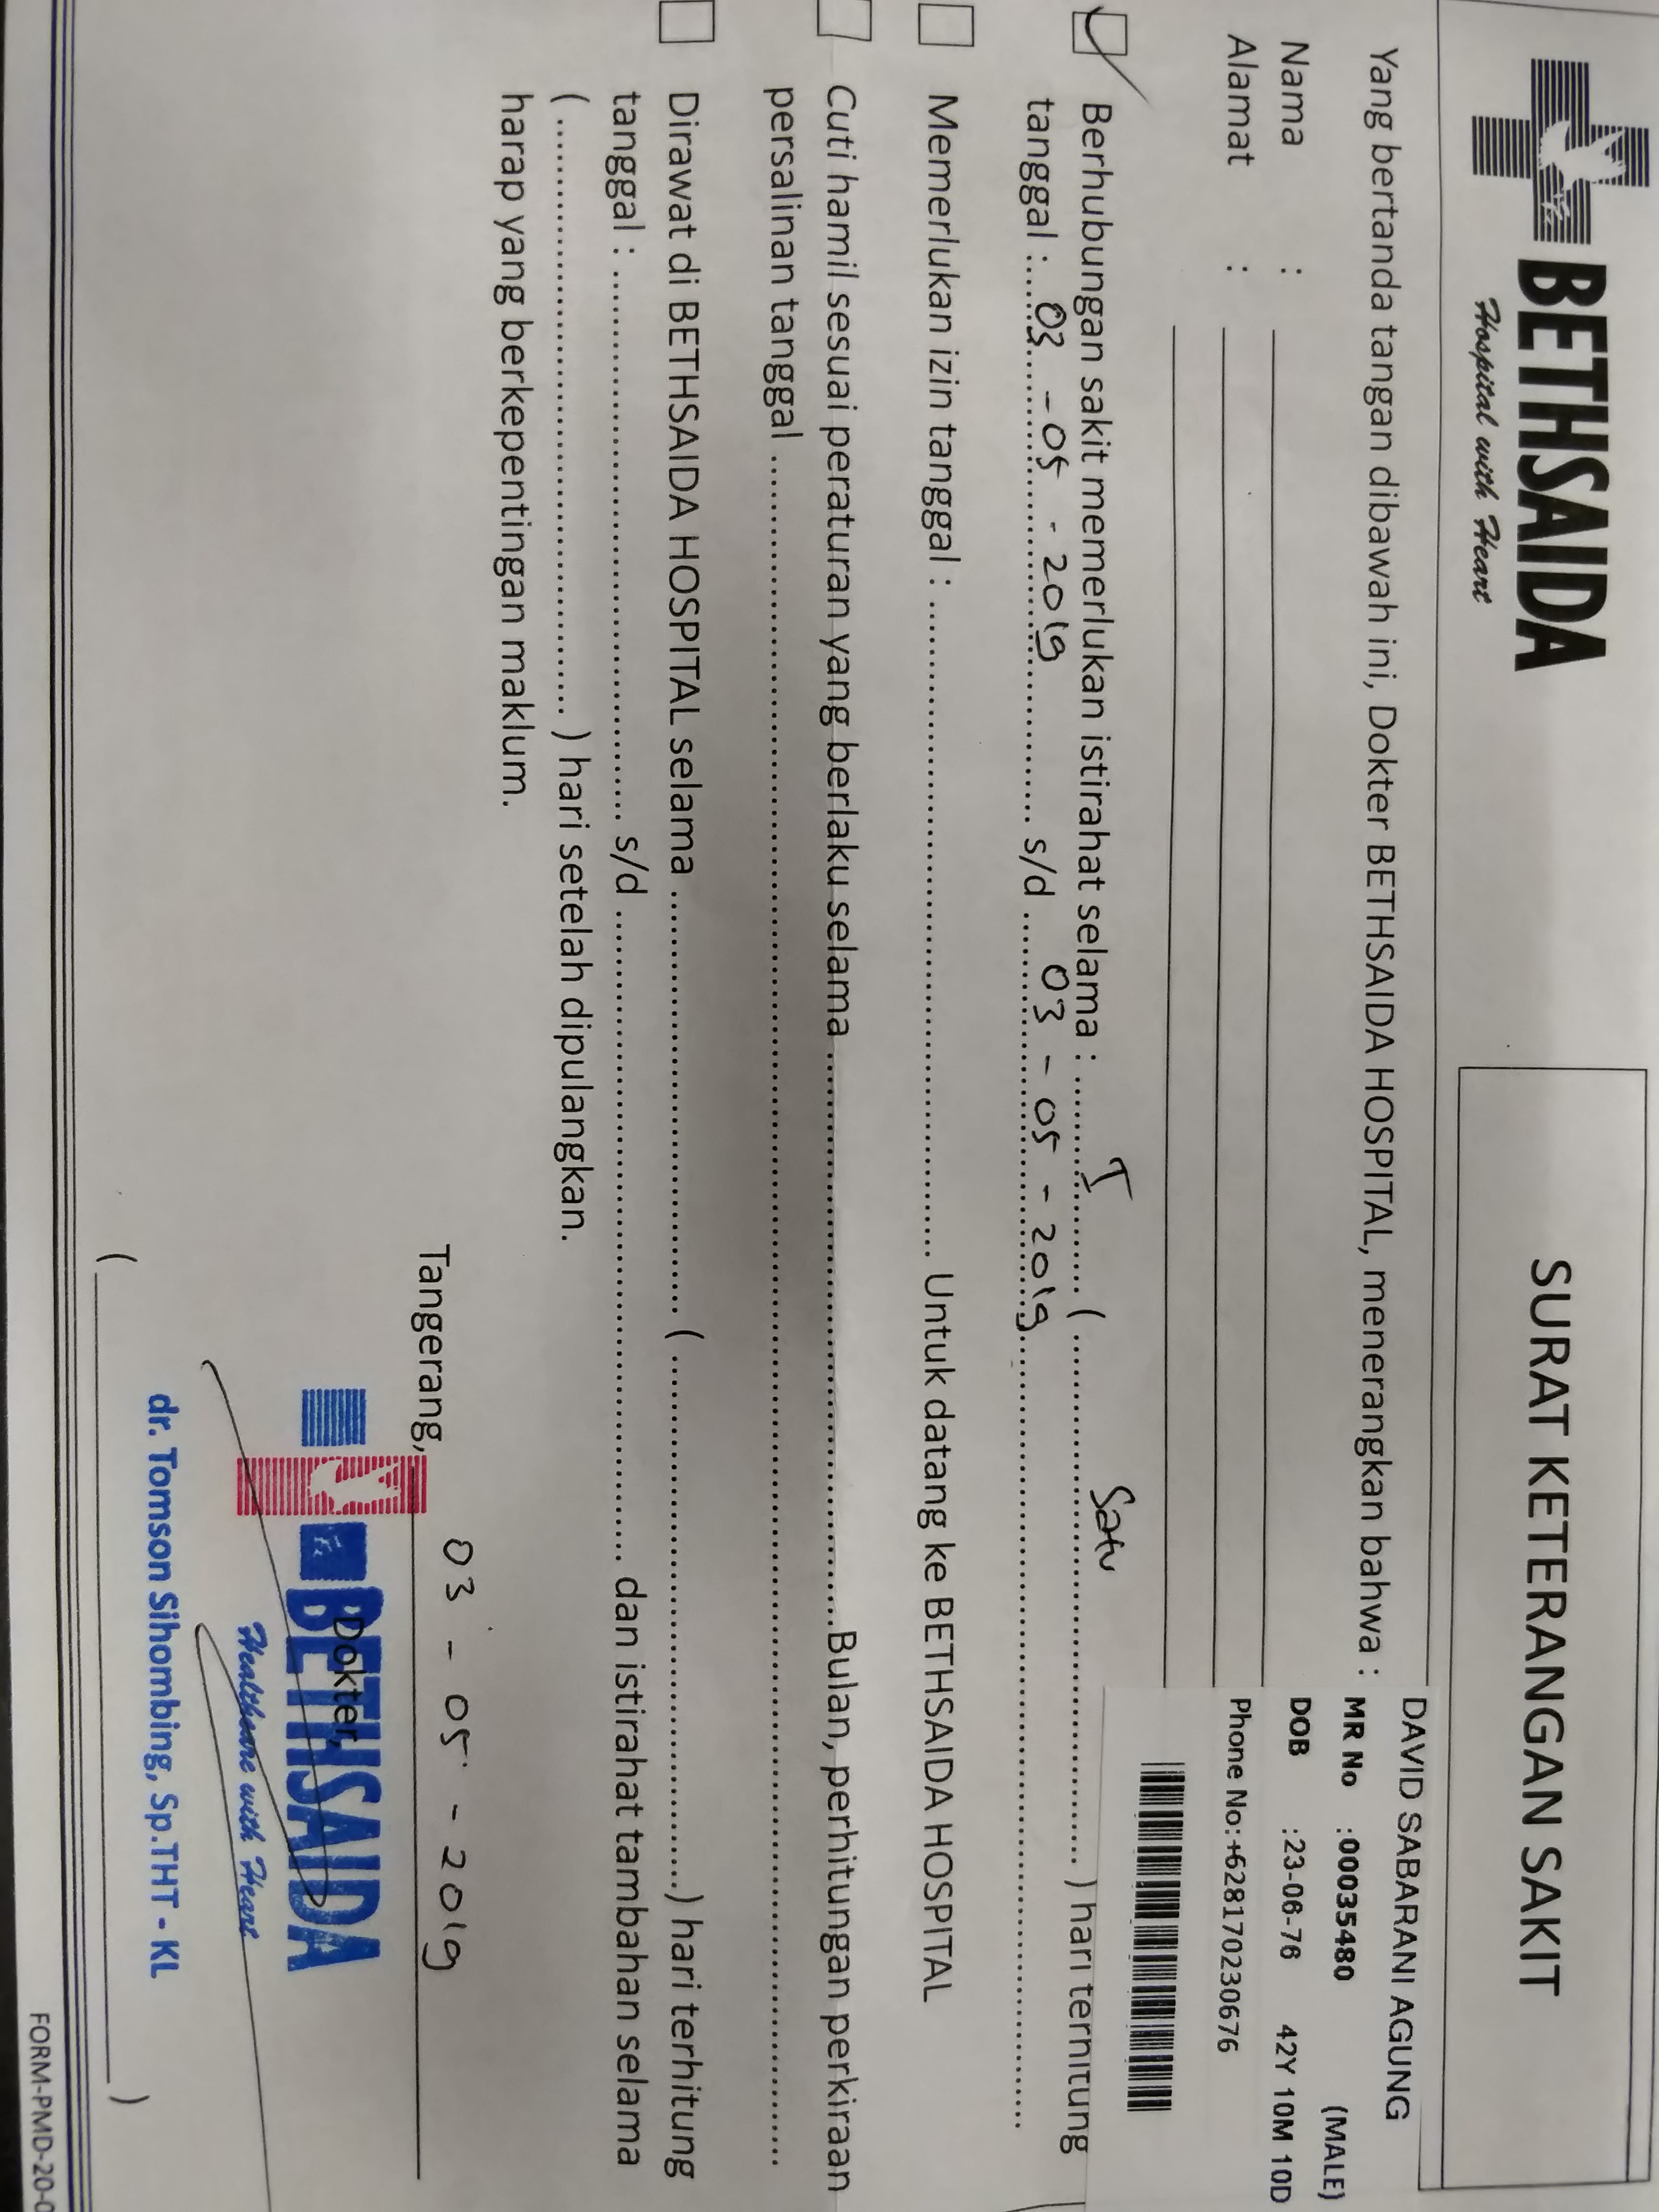 BETHSAIDA
Hospital with Heart
SURAT KETERANGAN SAKIT
Yang bertanda tangan dibawah ini, Dokter BETHSAIDA HOSPITAL, menerangkan bahwa :
DAVID SABARANI AGUNG
MR No :00035480 (MALE)
DOB :23-06-76 42Y 10M 10D
Phone No:+628170230676
Nama :
Alamat :
Berhubungan sakit memerlukan istirahat selama : I ( Satu ) hari terhitung
tanggal : 03 - 05 - 2019 s/d 03 - 05 - 2019
Memerlukan izin tanggal : Untuk datang ke BETHSAIDA HOSPITAL
Cuti hamil sesuai peraturan yang berlaku selama Bulan, perhitungan perkiraan
persalinan tanggal
Dirawat di BETHSAIDA HOSPITAL selama ( ) hari terhitung
tanggal : s/d dan istirahat tambahan selama
( ) hari setelah dipulangkan.
harap yang berkepentingan maklum.
Tangerang, 03 - 05 - 2019
Dokter,
BETHSAIDA
Healthcare with Heart
dr. Tomson Sihombing, Sp.THT - KL
( )
FORM-PMD-20-0